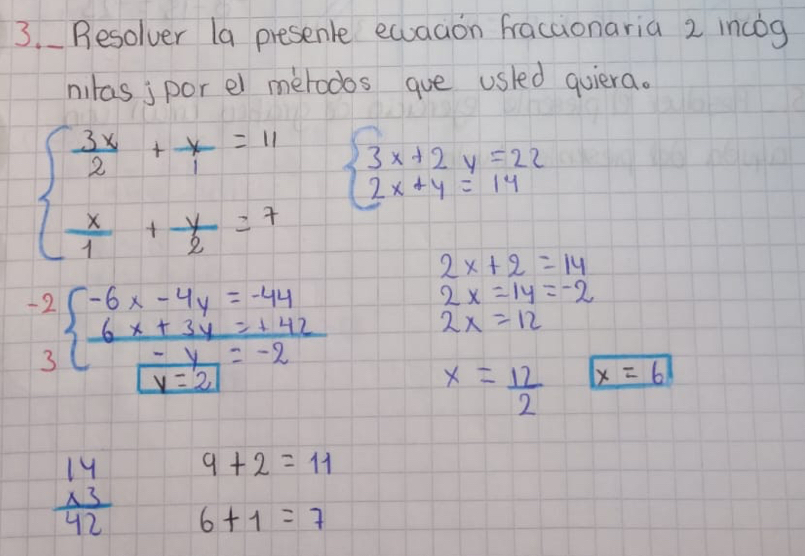 3._ Resolver la presente ecuación fraccionaria 2 incóg
nitas; por el métodos que usted quiera.
3x/2 + y/1 = 11
x/1 + y/2 = 7
3x + 2y = 22
2x + y = 14
-2 -6x - 4y = -44
3 6x + 3y = +42
- y = -2
y = 2
2x + 2 = 14
2x = 14 = -2
2x = 12
x = 12/2 x = 6
14
x3
42
9 + 2 = 11
6 + 1 = 7